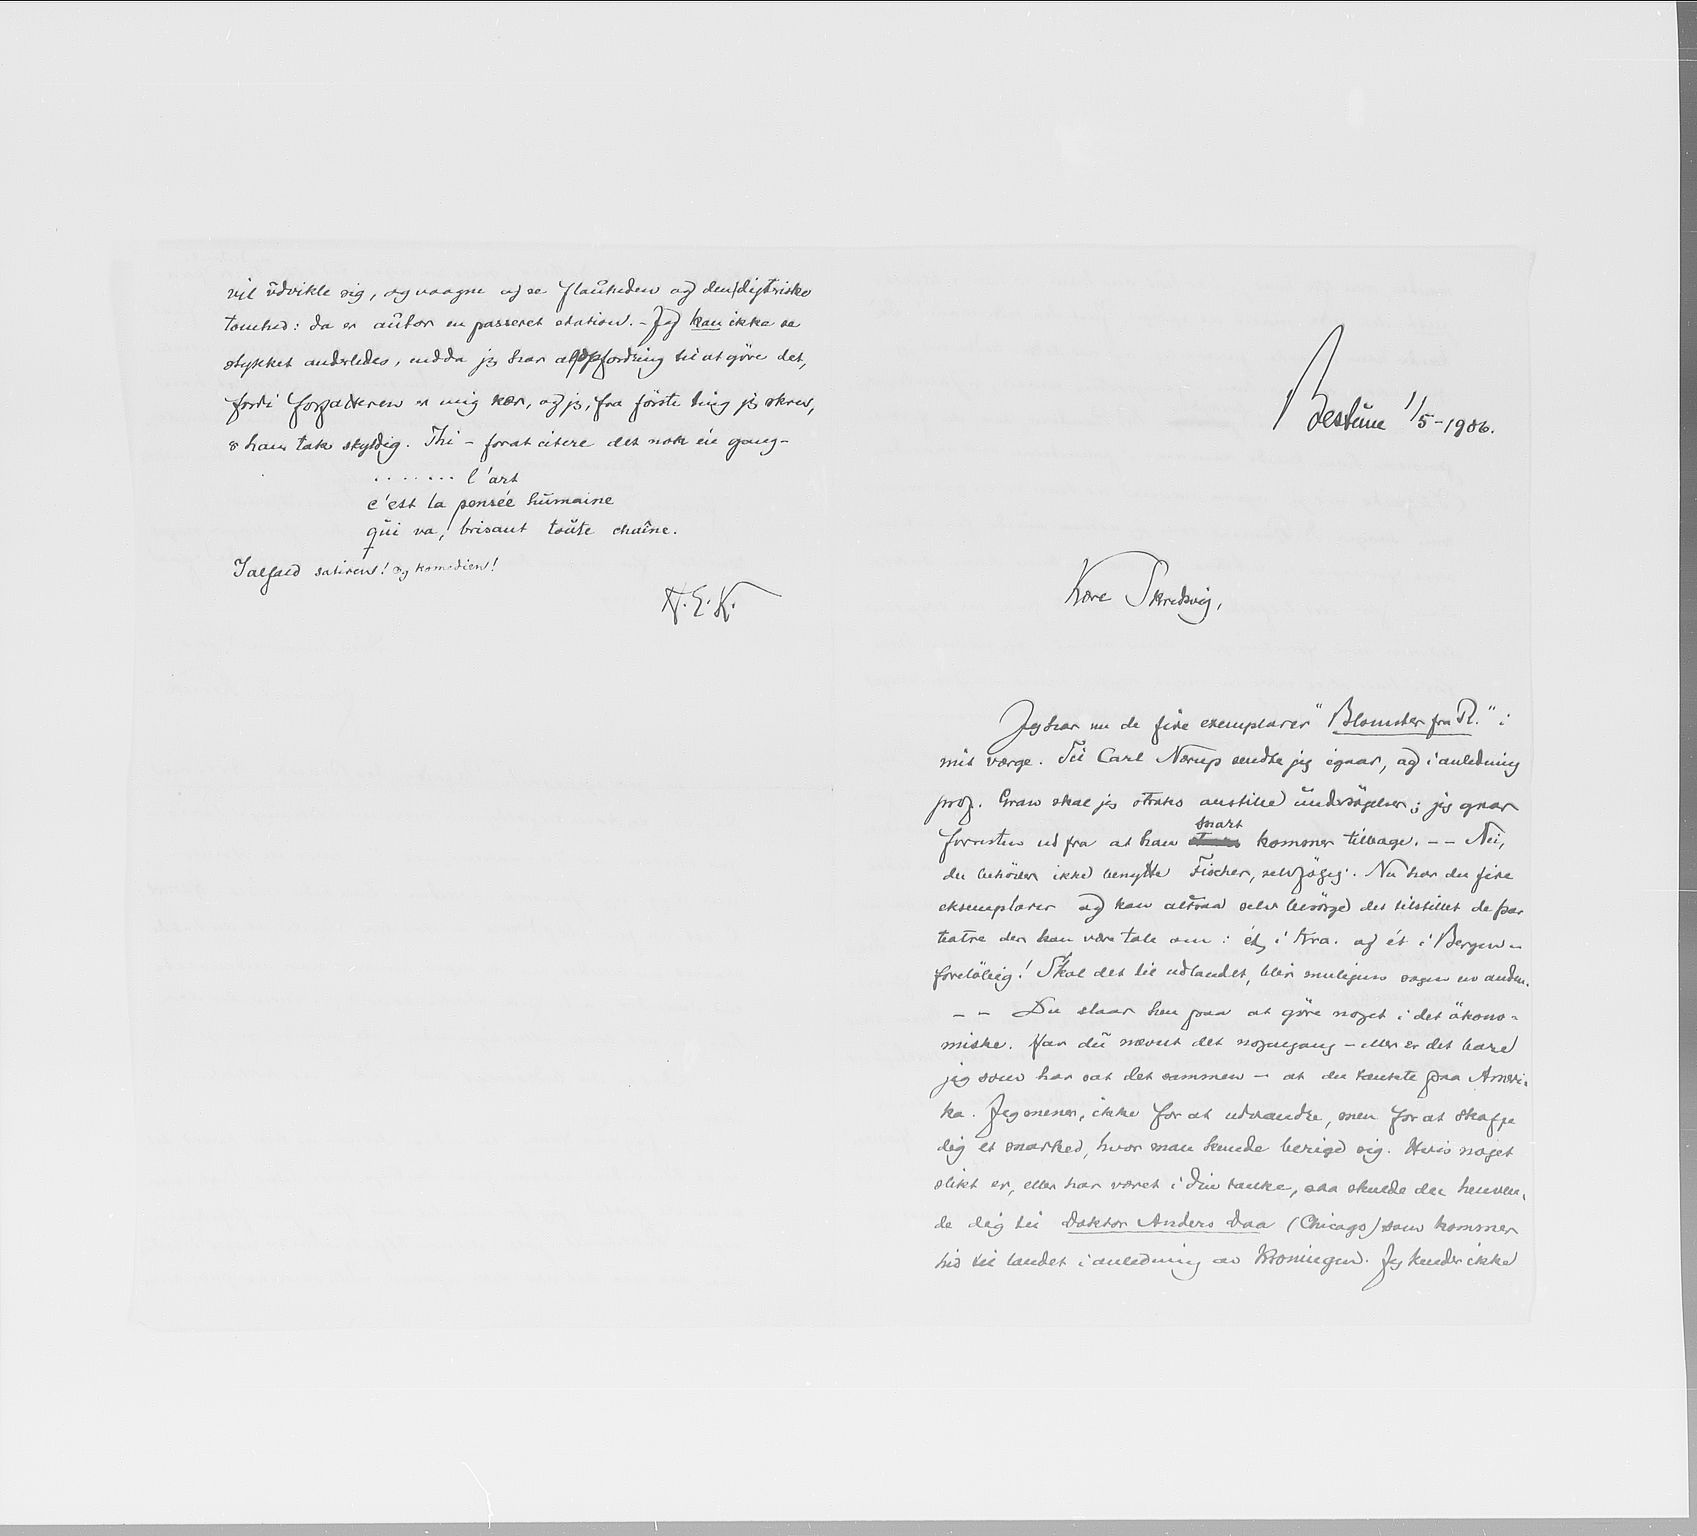 vil udvikle sig, og vaagne og se flauheden og den digteriske
tomhed: da er autor en passeret station. – Jeg kan ikke se
stykket anderledes, endda jeg har opfordring til at gøre det,
fordi forfatteren er mig kær, og jeg, fra første ting jeg skrev,
ham tak skyldig. Thi – forat citere det nok én gang –
. . . . . . . l'art
c'est la pensée humaine
qui va, brisant toute chaîne.
Ialfald satiren! og komedien!
K.
Bestum 1/5 - 1906.
Kære Skredsvig,
Jeg har nu de fire exemplarer "Blomster fra R." i
mit værge. Til Carl Nærup sendte jeg igaar, og i anledning
prof. Gran skal jeg straks anstille undersøgelser; jeg gaar
forresten ud fra at han snart kommer tilbage. – – Nei,
du behøver ikke benytte Fischer, selvfølgelig. Nu har du fire
eksemplarer og kan altsaa selv besørge det tilstillet de par
teatre der kan være tale om: ét i Kra. og ét i Bergen –
foreløbig! Skal det til udlandet, blir muligens sagen en anden.
– – Du slaar hen paa at gøre noget i det økono-
miske. Har du nævnt det nogengang – eller er det bare
jeg som har sat det sammen – at du tænkte paa Ameri-
ka. Jeg mener, ikke for at udvandre, men for at skaffe
dig et marked, hvor man kunde berige sig. Hvis noget
slikt er, eller har været i din tanke, saa skulde du henven-
de dig til Doktor Anders Daa (Chicago) som kommer
hid til landet i anledning av kroningen. Jeg kender ikke